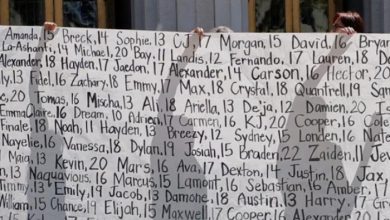 Amanda, 15 Breck, 14 Sophie, 13 CJ, 17 Morgan, 15 David, 16
La-Ashanti, 14 Michael, 20 Bay, 11 Landis, 12 Fernando, 17 Lauren, 18
Alexander, 18 Hayden, 17 Jaedon, 17 Alexander, 14 Carson, 16 Hector, 20
13 Fidel, 16 Zachary, 18 Emmy, 17 Max, 18 Crystal, 18 Quantrell, 19
20 Tomas, 16 Mischa, 13 Ali, 18 Ariella, 13 Deja, 12 Damien, 20
EmmaClaire, 16 Dream, 10 Adriea, 17 Carmen, 16 KJ, 20 Cooper, 16
Finale, 18 Noah, 11 Hayden, 13 Breezy, 12 Sydney, 15 Londen, 16
Nayelie, 16 Vanessa, 18 Dylan, 19 Josiah, 15 Braden, 22 Zaiden, 11
13 Kevin, 20 Mars, 16 Ava, 17 Dexton, 14 Justin, 18
Naquavious, 16 Marcus, 15 Lamont, 16 Sebastian, 16 Amber, 17
Timmy, 13 Emily, 19 Jacob, 13 Damone, 18 Austin, 13 Harry, 17
William, 15 Chance, 19 Elijah, 15 Maxwell, 17 Cooper, 16 Alexander, 17